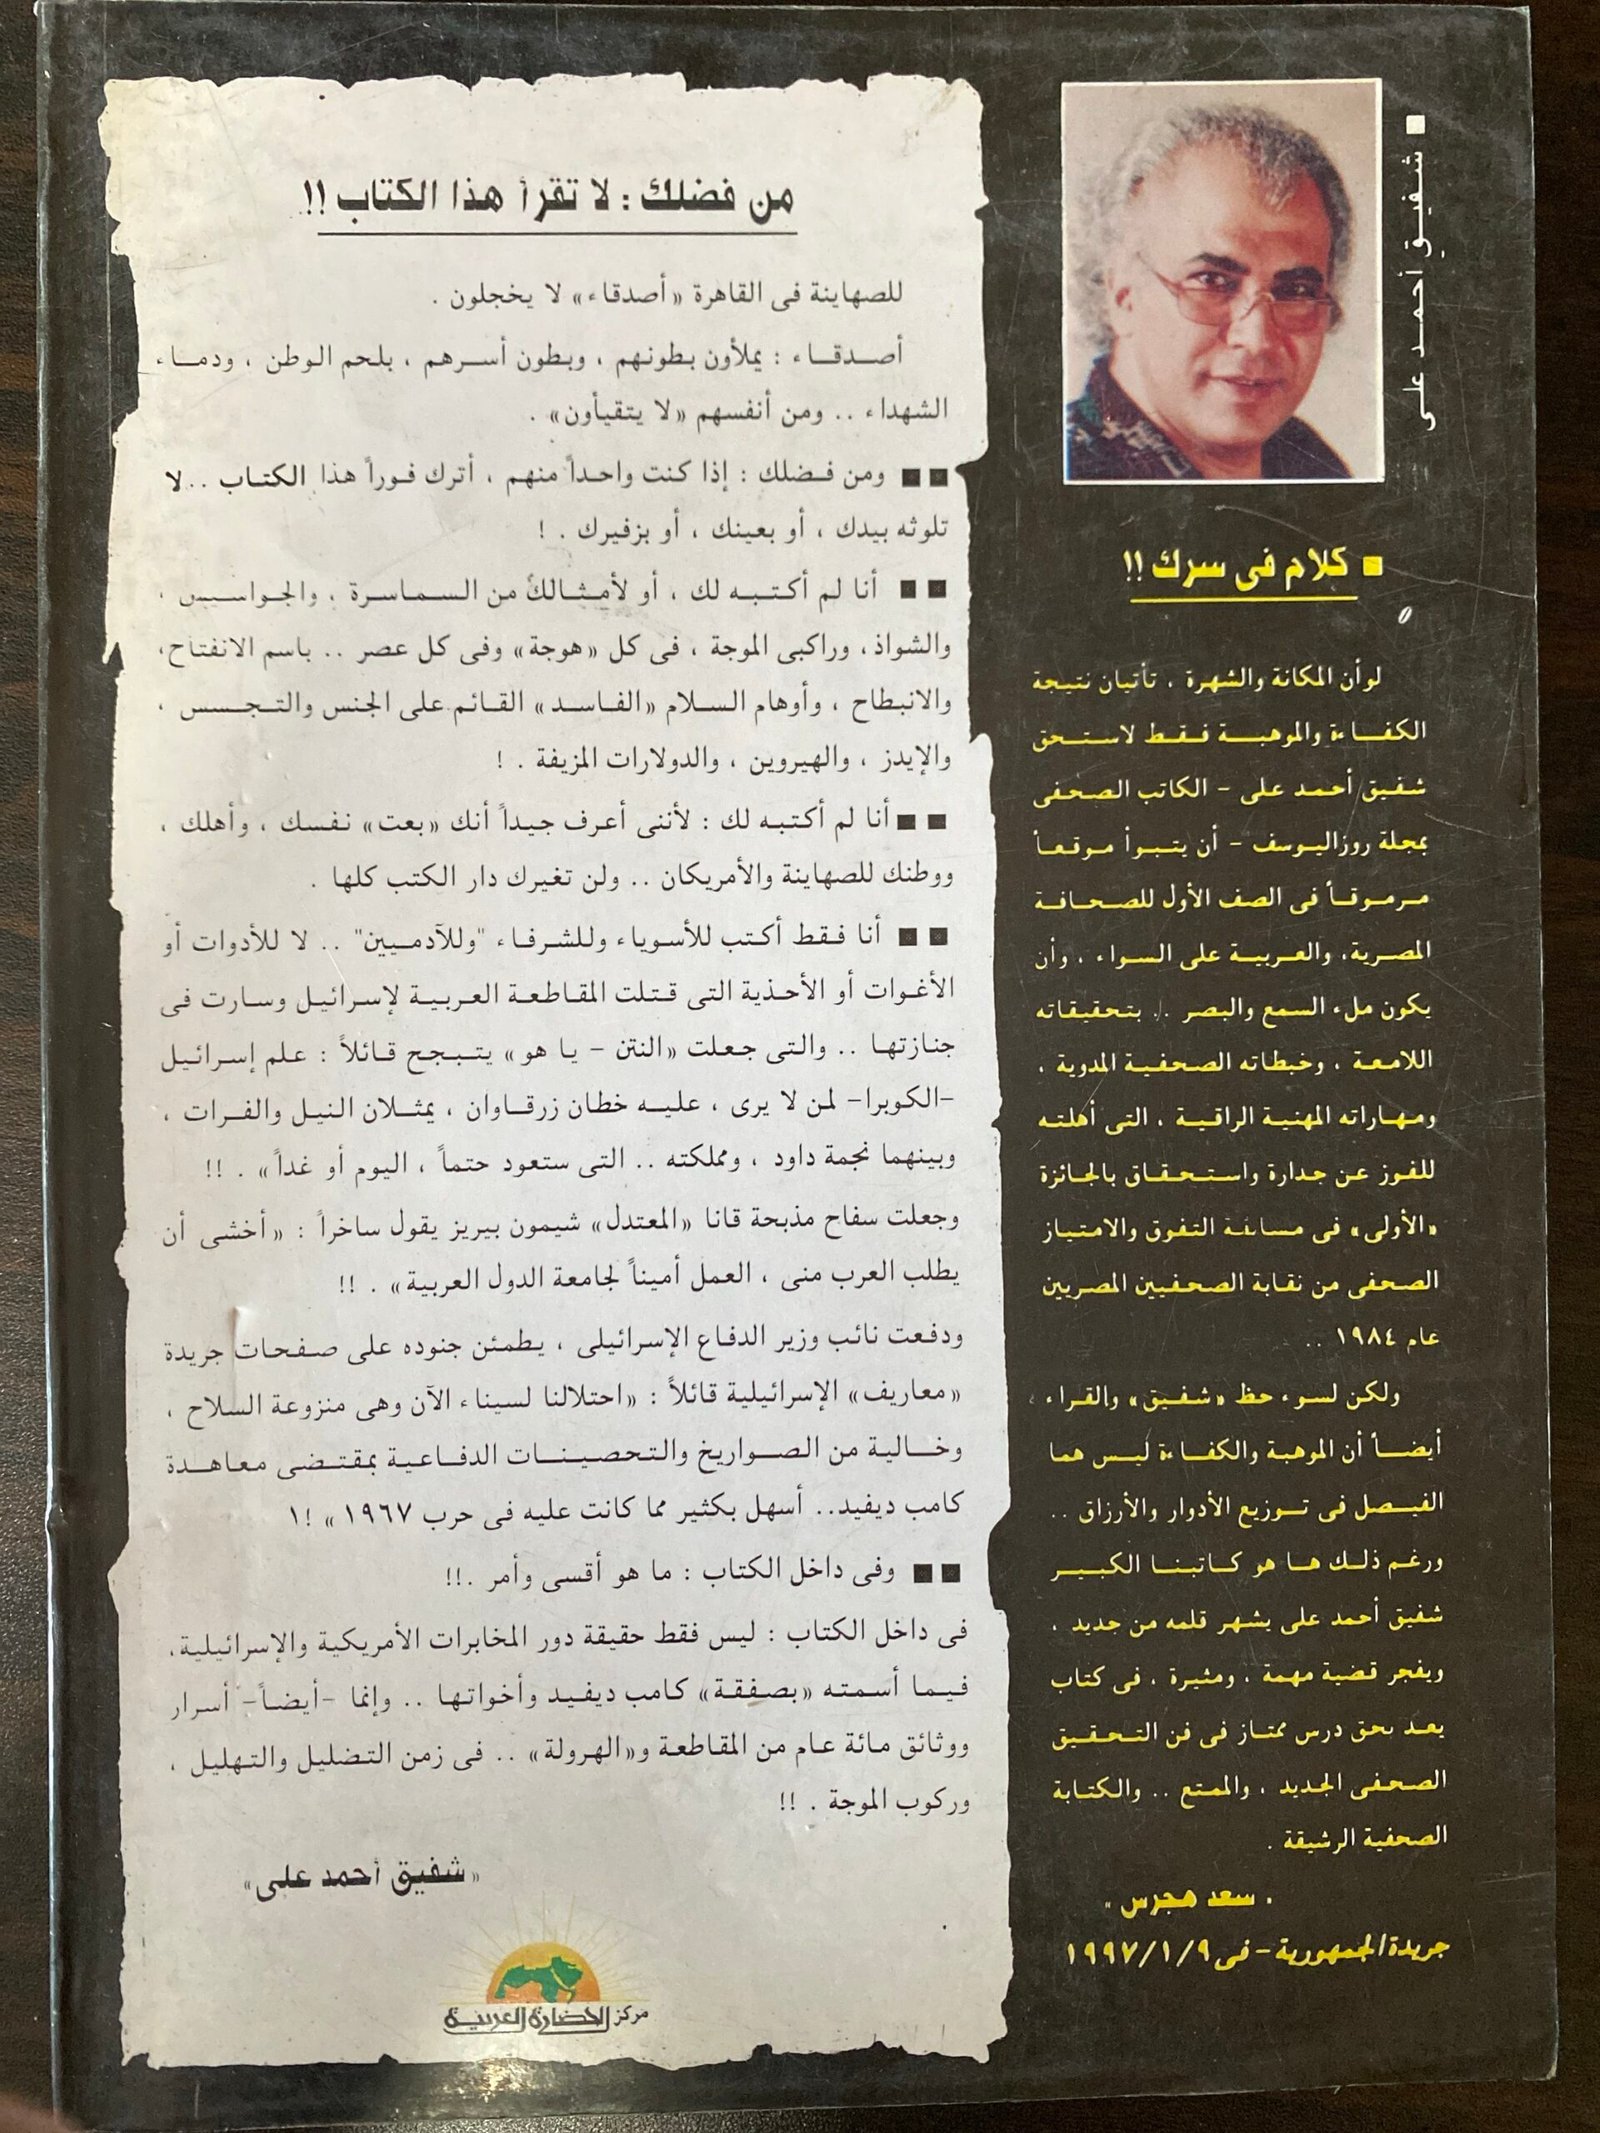 شفيق أحمد على
كلام فى سرك !!
لو أن المكانة والشهرة ، تأتيان نتيجة
الكفاءة والموهبة فقط لاستحق
شفيق أحمد على - الكاتب الصحفى
بمجلة روزاليوسف - أن يتبوأ موقعاً
مرموقاً فى الصف الأول للصحافة
المصرية، والعربية على السواء ، وأن
يكون ملء السمع والبصر .. بتحقيقاته
اللامعة ، وخبطاته الصحفية المدوية ،
ومهاراته المهنية الراقية ، التى أهلته
للفوز عن جدارة واستحقاق بالجائزة
«الأولى» فى مسابقة التفوق والامتياز
الصحفى من نقابة الصحفيين المصريين
عام ١٩٨٤ ..
ولكن لسوء حظ «شفيق» والقراء
أيضاً أن الموهبة والكفاءة ليس هما
الفيصل فى توزيع الأدوار والأرزاق ..
ورغم ذلك ها هو كاتبنا الكبير
شفيق أحمد على يشهر قلمه من جديد ،
ويفجر قضية مهمة ، ومثيرة ، فى كتاب
يعد بحق درس ممتاز فى فن التحقيق
الصحفى الجديد ، والممتع .. والكتابة
الصحفية الرشيقة .
« سعد هجرس »
جريدة الجمهورية - فى ١٩٩٧/١/٩
من فضلك : لا تقرأ هذا الكتاب !!
للصهاينة فى القاهرة «أصدقاء» لا يخجلون .
أصدقاء : يملأون بطونهم ، وبطون أسرهم ، بلحم الوطن ، ودماء
الشهداء .. ومن أنفسهم «لا يتقيأون» .
■■ ومن فضلك : إذا كنت واحداً منهم ، أترك فوراً هذا الكتاب .. لا
تلوثه بيدك ، أو بعينك ، أو بزفيرك . !
■■ أنا لم أكتبه لك ، أو لأمثالك من السماسرة ، والجواسيس ،
والشواذ، وراكبى الموجة ، فى كل «هوجة» وفى كل عصر .. باسم الانفتاح،
والانبطاح ، وأوهام السلام «الفاسد» القائم على الجنس والتجسس ،
والإيدز ، والهيروين ، والدولارات المزيفة . !
■■ أنا لم أكتبه لك : لأننى أعرف جيداً أنك «بعت» نفسك ، وأهلك ،
ووطنك للصهاينة والأمريكان .. ولن تغيرك دار الكتب كلها .
■■ أنا فقط أكتب للأسوياء وللشرفاء "وللآدميين" .. لا للأدوات أو
الأغوات أو الأحذية التى قتلت المقاطعة العربية لإسرائيل وسارت فى
جنازتها .. والتى جعلت «النتن - يا هو» يتبجح قائلاً : علم إسرائيل
-الكوبرا- لمن لا يرى ، عليه خطان زرقاوان ، يمثلان النيل والفرات ،
وبينهما نجمة داود ، ومملكته .. التى ستعود حتماً ، اليوم أو غداً» . !!
وجعلت سفاح مذبحة قانا «المعتدل» شيمون بيريز يقول ساخراً : «أخشى أن
يطلب العرب منى ، العمل أميناً لجامعة الدول العربية» . !!
ودفعت نائب وزير الدفاع الإسرائيلى ، يطمئن جنوده على صفحات جريدة
«معاريف» الإسرائيلية قائلاً : «احتلالنا لسيناء الآن وهى منزوعة السلاح ،
وخالية من الصواريخ والتحصينات الدفاعية بمقتضى معاهدة
كامب ديفيد.. أسهل بكثير مما كانت عليه فى حرب ١٩٦٧ » !١
■■ وفى داخل الكتاب : ما هو أقسى وأمر .!!
فى داخل الكتاب : ليس فقط حقيقة دور المخابرات الأمريكية والإسرائيلية،
فيما أسمته «بصفقة» كامب ديفيد وأخواتها .. وإنما -أيضاً- أسرار
ووثائق مائة عام من المقاطعة و«الهرولة» .. فى زمن التضليل والتهليل ،
وركوب الموجة . !!
«شفيق أحمد على»
مركز الحضارة العربية